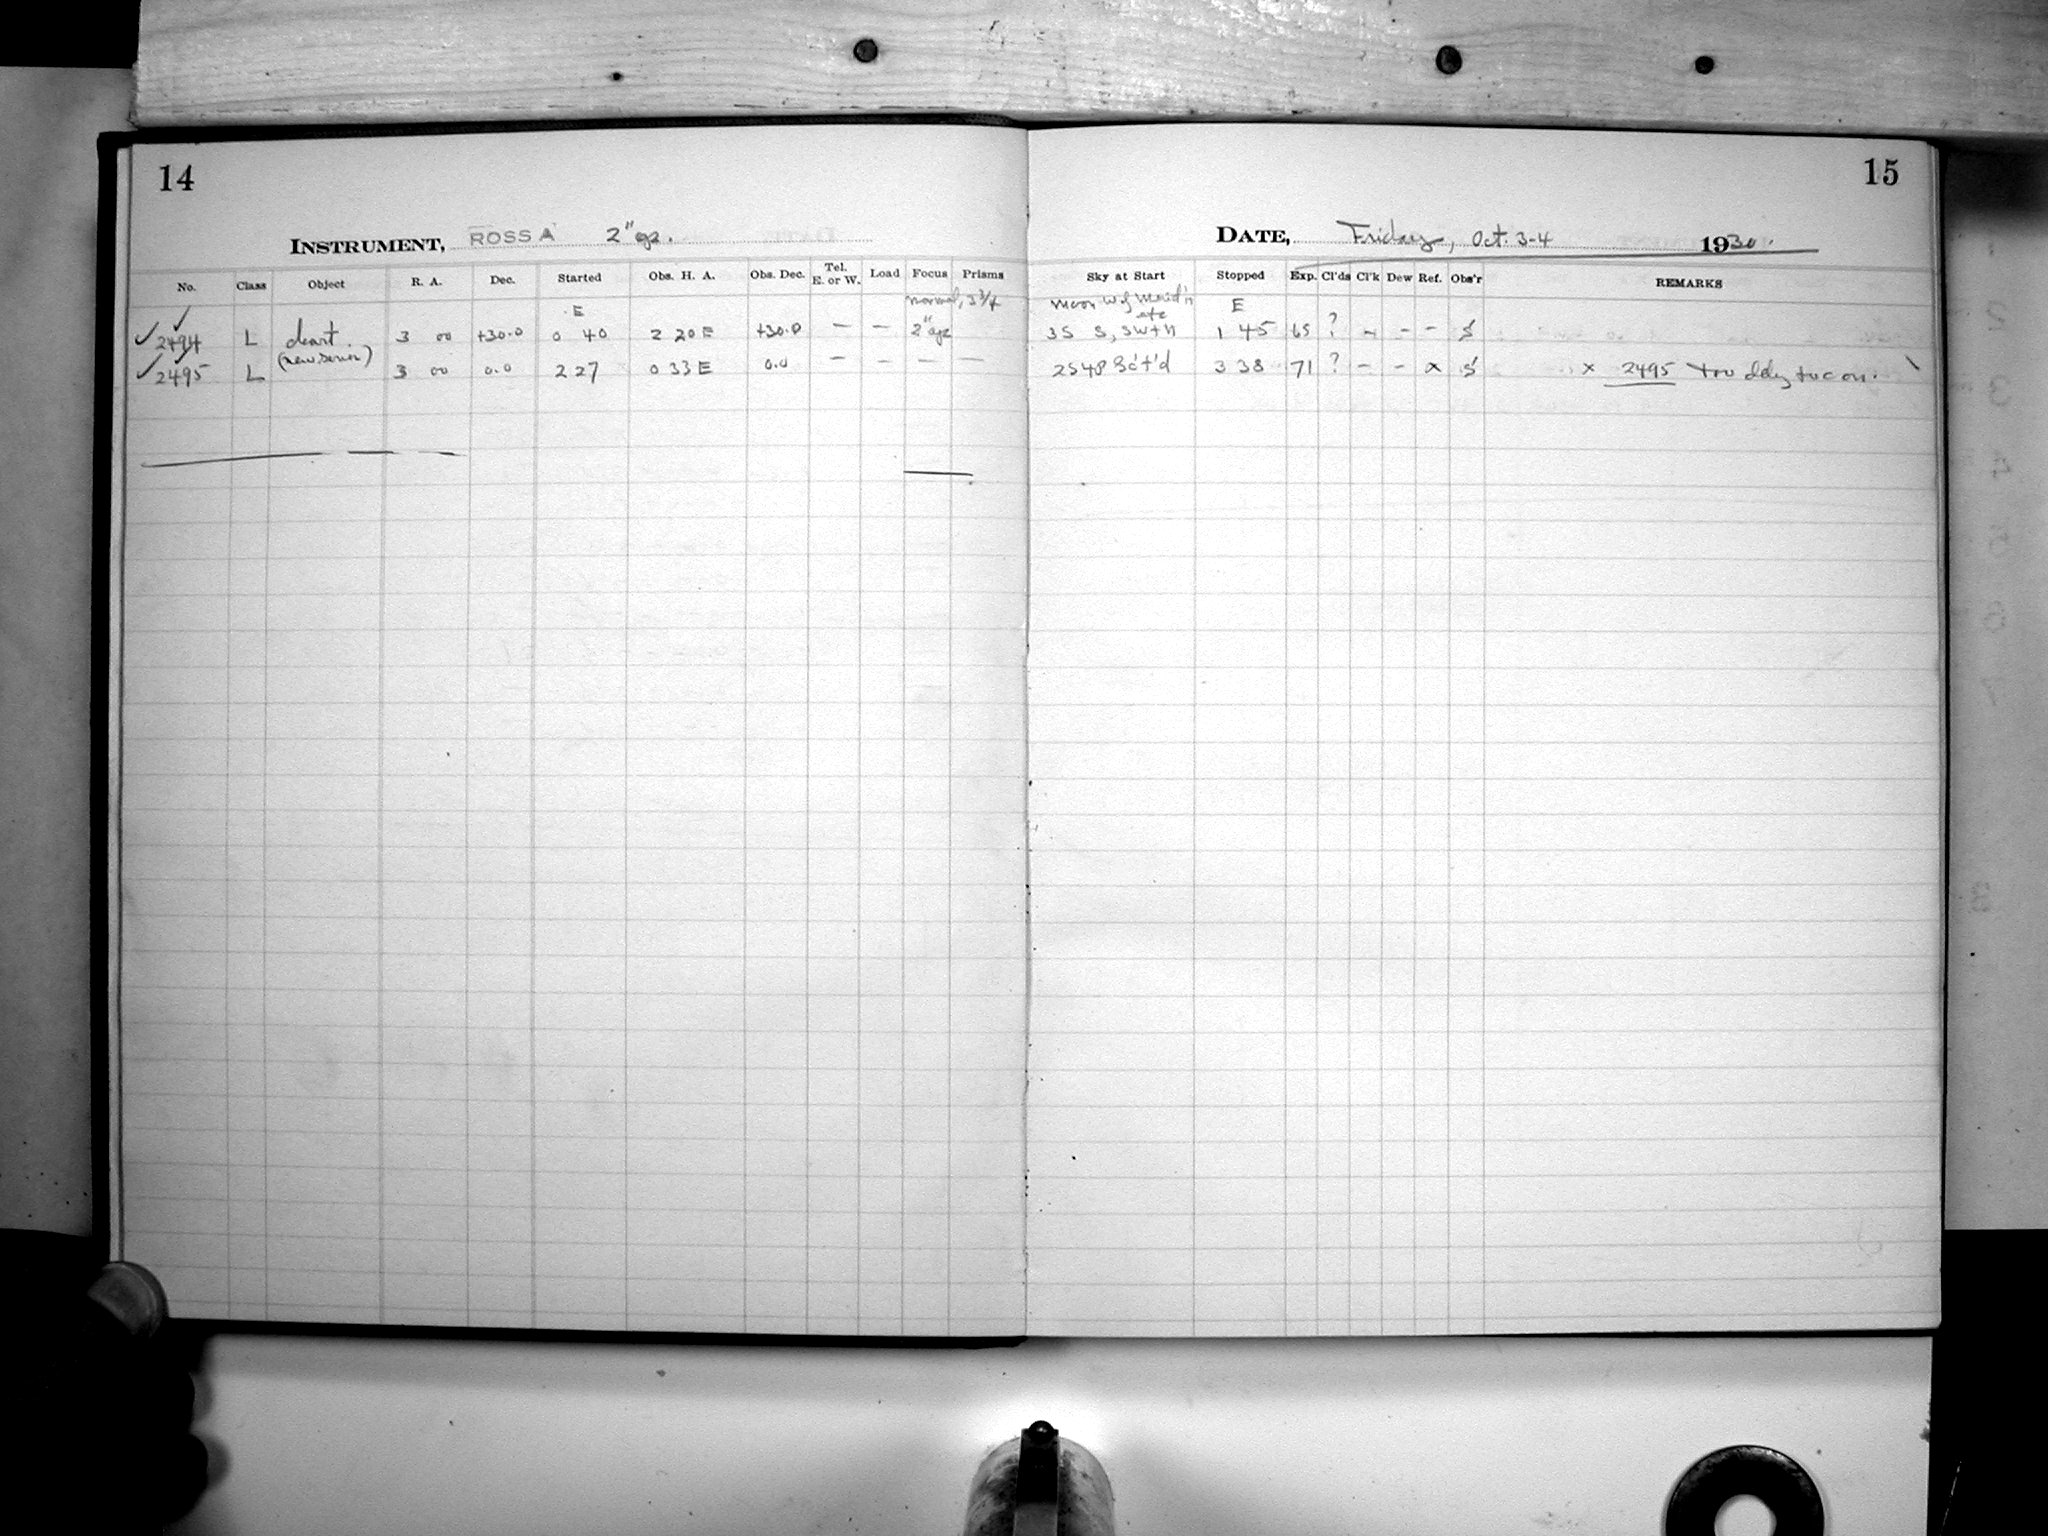 14
INSTRUMENT, ROSS A 2" gz.
No. Class Object R. A. Dec. Started Obs. H. A. Obs. Dec. Tel. E. or W. Load Focus Prisms
E normal, 3 3/4
2494 L chart. 3 00 +30.0 0 40 2 20 E +30.0 — — 2"
(new series)
2495 L 3 00 0.0 2 27 0 33 E 0.0 — — — —
15
DATE, Friday, Oct. 3-4 1930.
Sky at Start Stopped Exp. Cl'ds Cl'k Dew Ref. Obs'r REMARKS
moon W of E
3S S, SW + N 1 45 65 ? - - - S
Sc't'd 3 38 71 ? - - x S x 2495